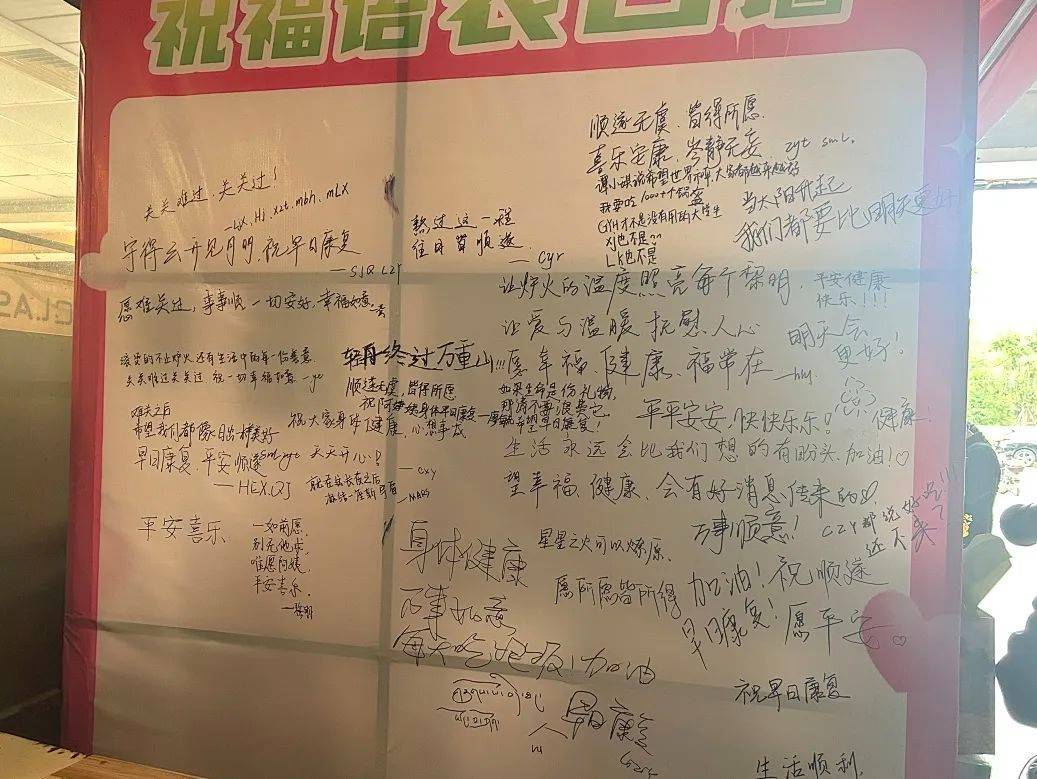 祝福语表白墙
关关难过,关关过!
—LJX, HJ, xzt, mbh, mLX
守得云开见月明,祝早日康复
—SJQ LZY
愿难关过,事事顺,一切安好,幸福如意
滚烫的不止炉火还有生活中的每一份善意
关关难过关关过 祝一切幸福如意 —yc
难关之后
希望我们都像日出一样美好
早日康复,平安顺遂 smL zyt 天天开心!
—HEX.QJ
平安喜乐
一如前愿,
别无他求,
唯愿阿姨,
平安喜乐.
—黎明
熬过这一程
往日皆顺遂
—Cyr
轻舟终过万重山!!!
顺遂无虞,皆得所愿
祝大家身体健康,心想事成
—cxy
—MARS
身体健康
万事如意
每天吃吃饭!加油
顺遂无虞,皆得所愿.
喜乐安康,岑静无妄 zyt smL.
我要吃1000个锅盔
GYH才不是没有用的大学生
XJ也不是~
LK也不是
当太阳升起
我们都要比明天更好
让炉火的温度照亮每个黎明,
让爱与温暖抚慰人心
平安健康
快乐!!!
明天会
更好!
愿幸福、健康、福常在 —hly
如果生命是份礼物,
平平安安,快快乐乐!
健康!
生活永远会比我们想的有盼头.加油!♡
望幸福、健康、会有好消息传来的♡
万事顺意!
CZY都说好吃!!!
还大来了
星星之火可以燎原.
愿所愿皆所得
加油!祝顺遂
早日康复!愿平安♡
早日康复
祝早日康复
生活顺利,